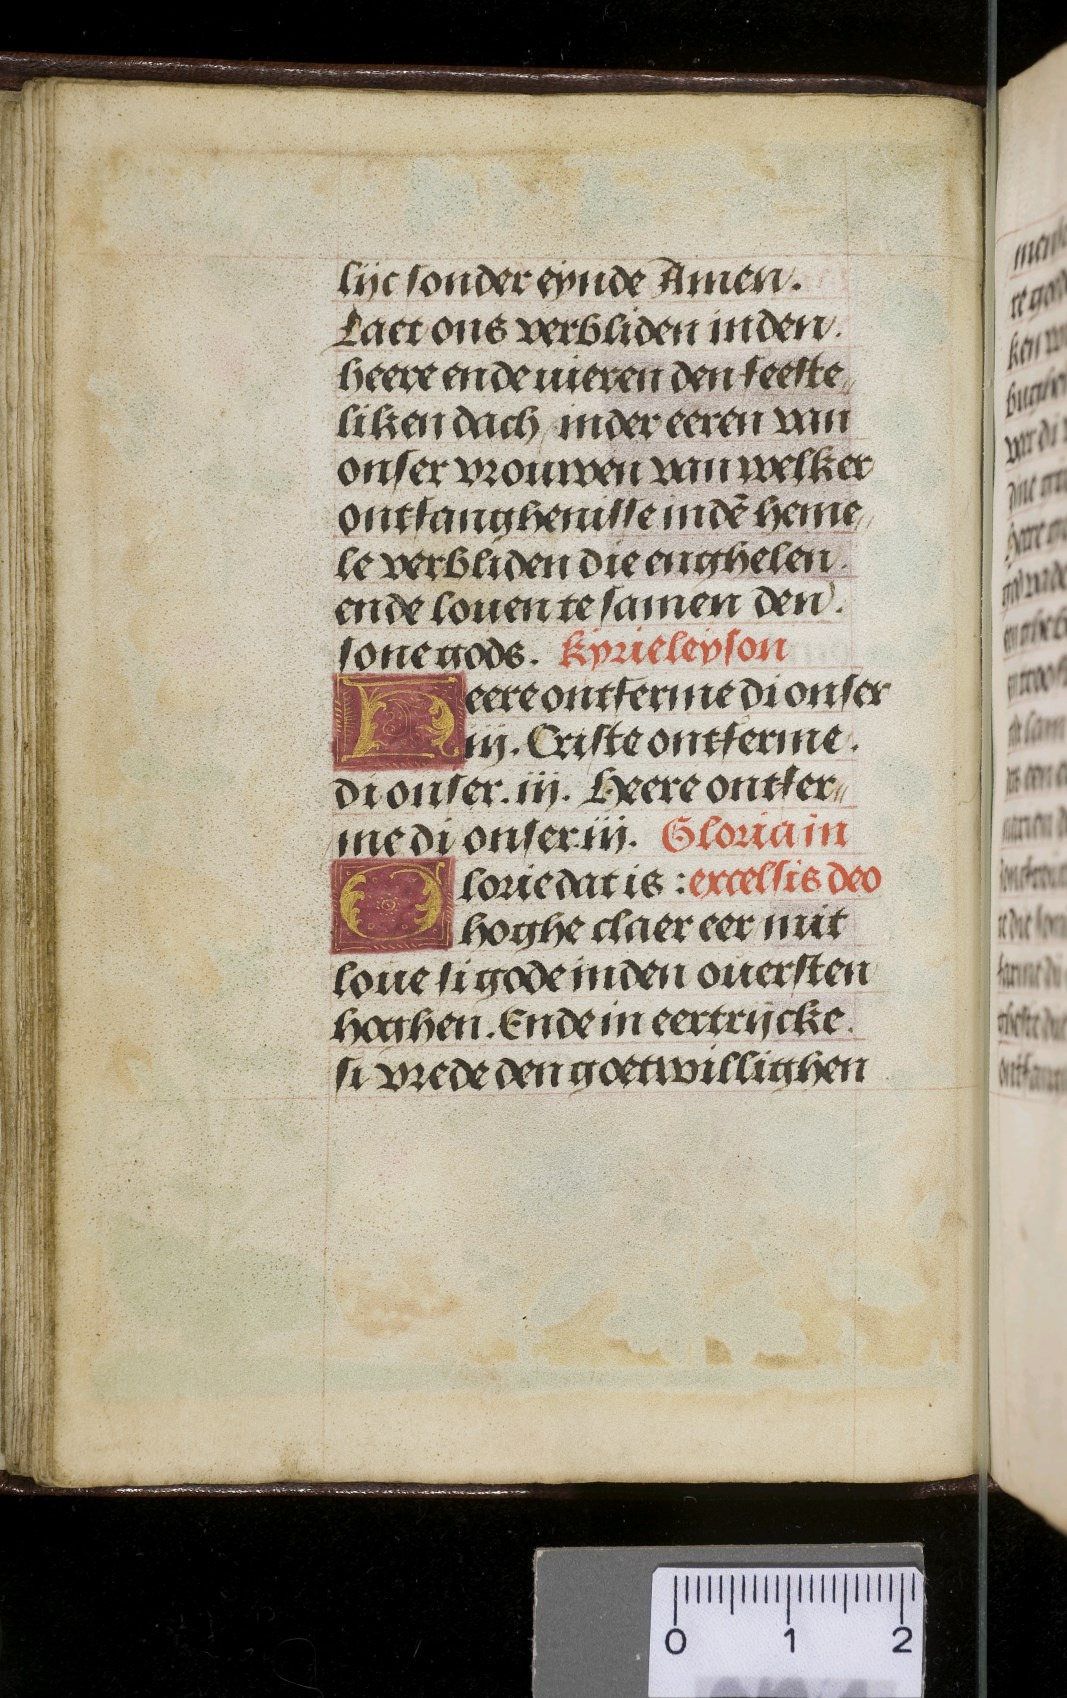 lijc sonder eynde Amen.
Laet ons verbliden inden.
heere ende uieren den feeste„
liken dach, inder eeren van
onser vrouwen van welker
ontfanghenisse indē heme„
le verbliden die enghelen.
ende louen te samen den.
sone gods. kyrieleyson
Heere ontferme di onser
iij. Criste ontferme.
di onser. iij. Heere ontfer„
me di onser. iij. Gloria in
Glorie dat is : excelsis deo
hoghe claer eer mit
loue si gode inden ouersten
hoghen. Ende in eertrijcke.
si vrede den goetwillighen
0 1 2